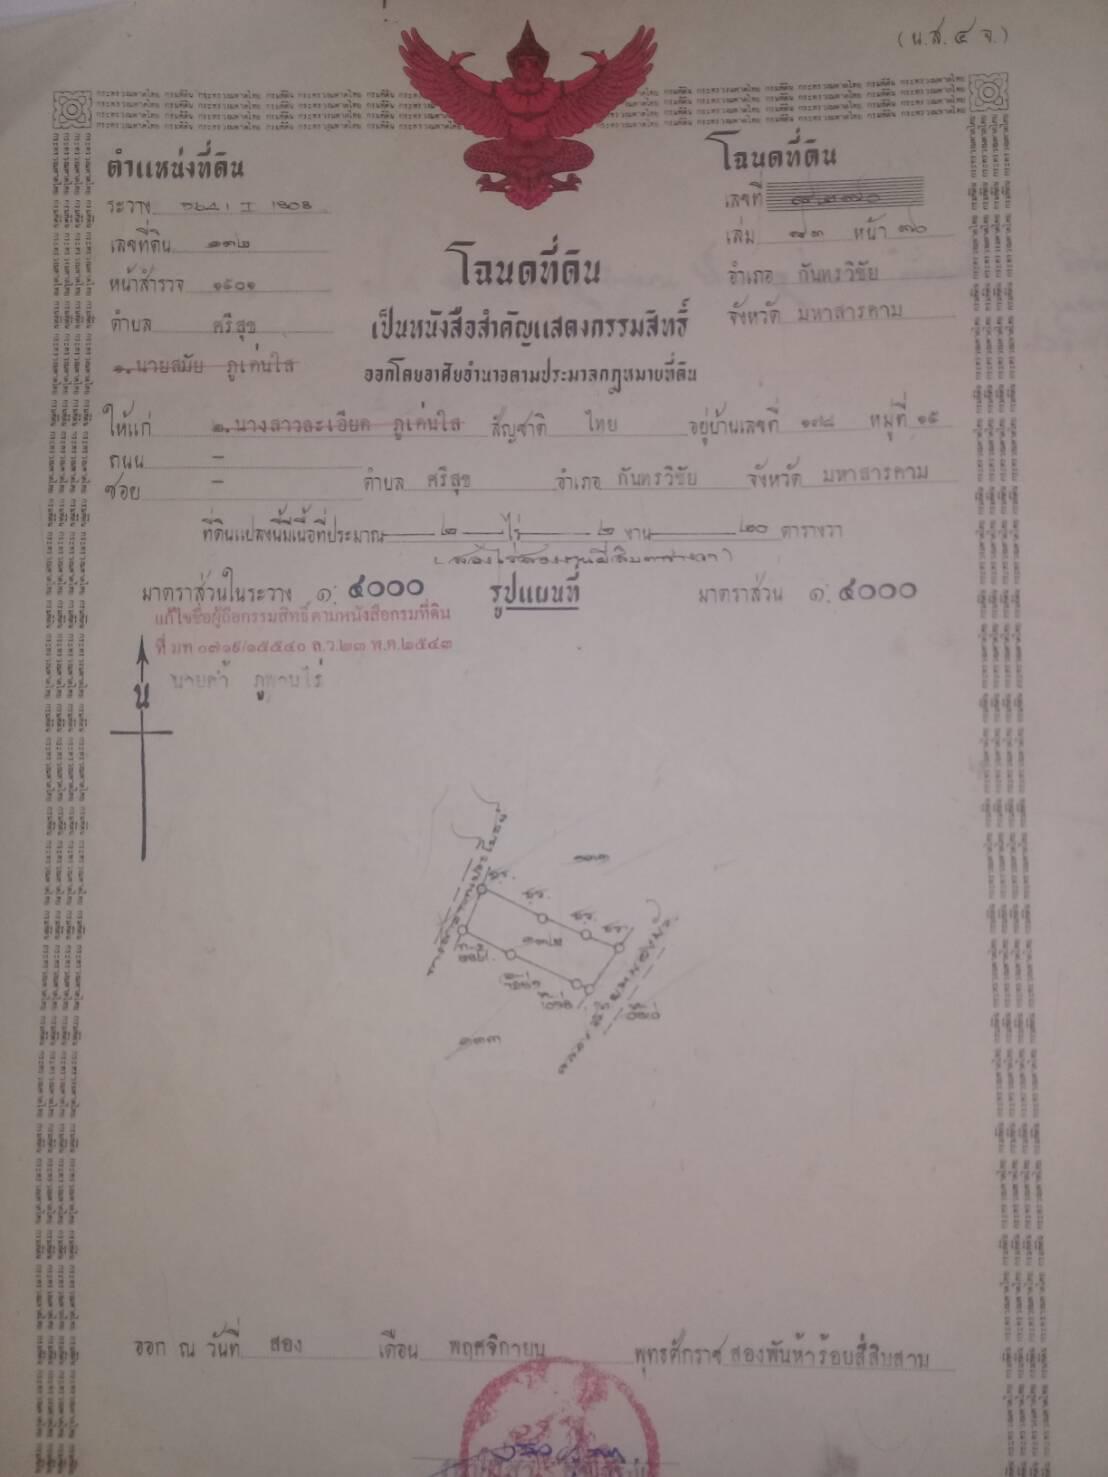 (น.ส.๔ จ.)
ตำแหน่งที่ดิน
ระวาง 5641 I 1808
เลขที่ดิน ๑๓๒
หน้าสำรวจ ๑๕๐๑
ตำบล ศรีสุข
โฉนดที่ดิน
เลขที่
เล่ม ๙๓ หน้า ๗๐
อำเภอ กันทรวิชัย
จังหวัด มหาสารคาม
โฉนดที่ดิน
เป็นหนังสือสำคัญแสดงกรรมสิทธิ์
ออกโดยอาศัยอำนาจตามประมวลกฎหมายที่ดิน
๑. นายสมัย ภูเด่นใส
ให้แก่ ๒. นางสาวละเอียด ภูเด่นใส สัญชาติ ไทย อยู่บ้านเลขที่ ๑๗๘ หมู่ที่ ๑๕
ถนน –
ซอย – ตำบล ศรีสุข อำเภอ กันทรวิชัย จังหวัด มหาสารคาม
ที่ดินแปลงนี้มีเนื้อที่ประมาณ ๒ ไร่ ๒ งาน ๒๐ ตารางวา
(สองไร่สองงานยี่สิบตารางวา)
มาตราส่วนในระวาง ๑:๔๐๐๐ รูปแผนที่ มาตราส่วน ๑:๔๐๐๐
แก้ไขชื่อผู้ถือกรรมสิทธิ์ตามหนังสือกรมที่ดิน
ที่ มท ๐๗๑๙/๑๕๕๔๐ ล.ว.๒๓ พ.ค.๒๕๔๓
นายคำ
น
๑๓๒
๑๓๓
ออก ณ วันที่ สอง เดือน พฤศจิกายน พุทธศักราช สองพันห้าร้อยสี่สิบสาม